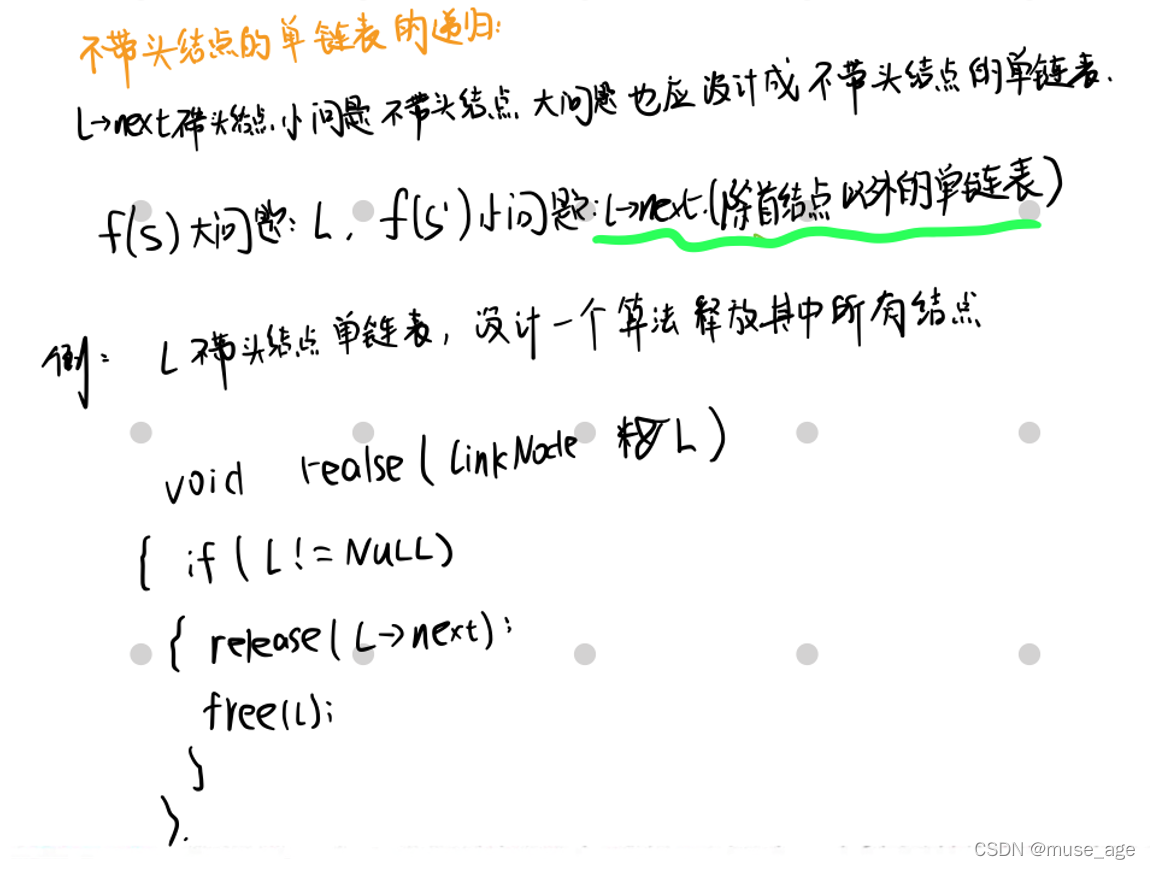 不带头结点的单链表的递归:
L→next不带头结点,小问题不带头结点,大问题也应设计成不带头结点的单链表.
f(s)大问题: L, f(s')小问题: L→next.(除首结点以外的单链表)
例: L不带头结点单链表,设计一个算法释放其中所有结点
void realse(LinkNode * L)
{ if(L!=NULL)
{ release(L→next);
free(L);
}
}.
CSDN @muse_age